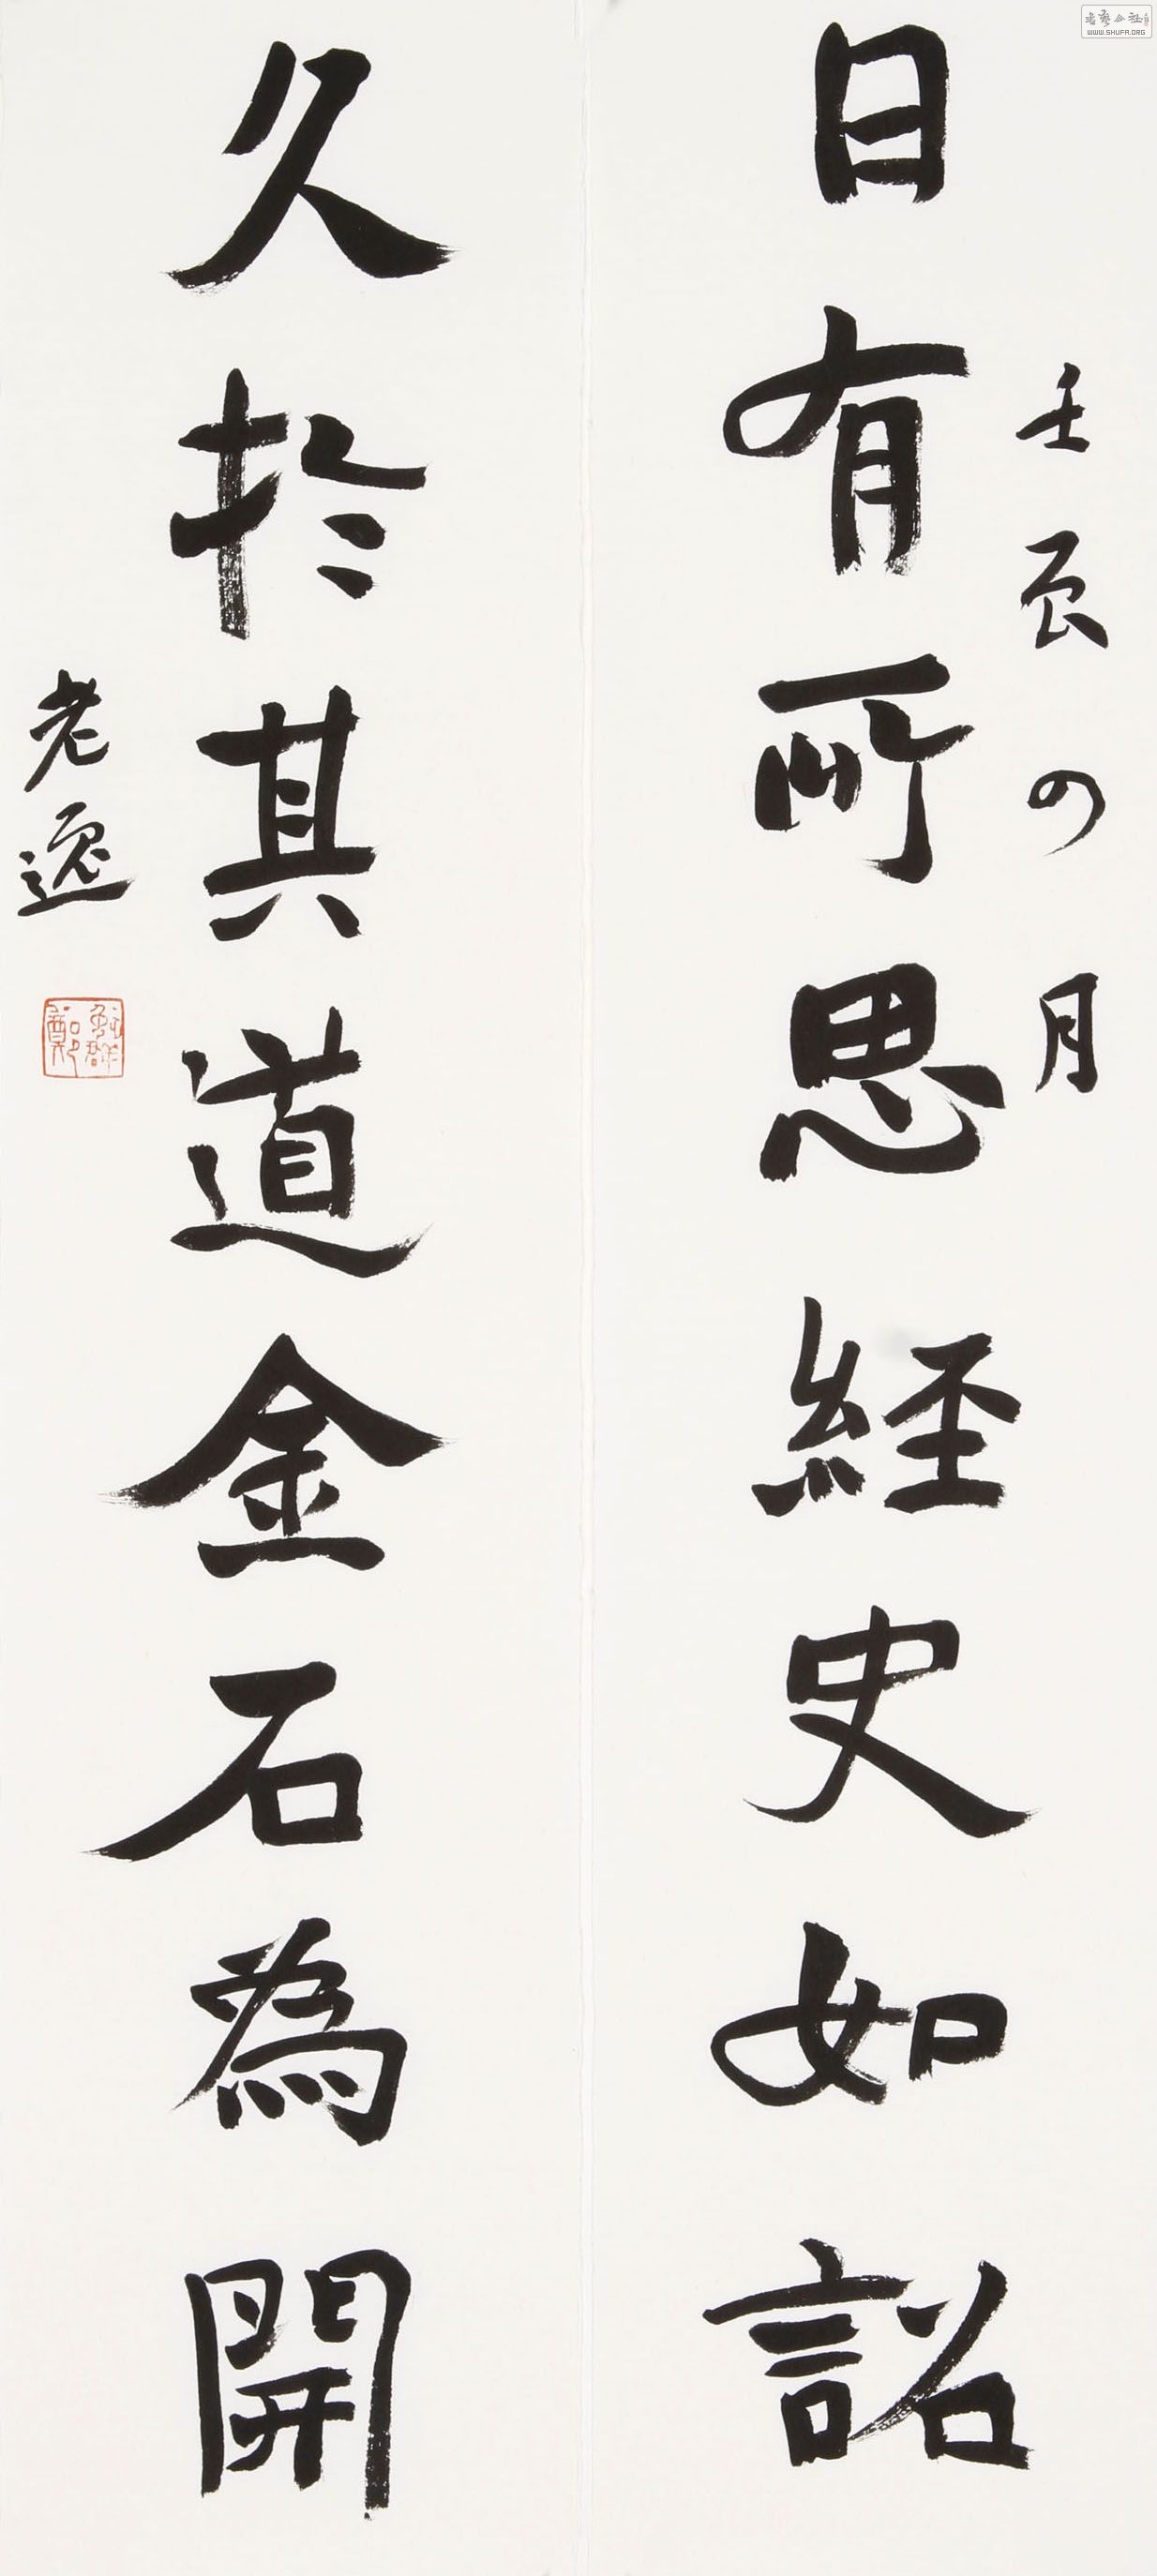 壬辰四月
日有所思經史如詔
久於其道金石為開
老逸
WWW.SHUFA.ORG